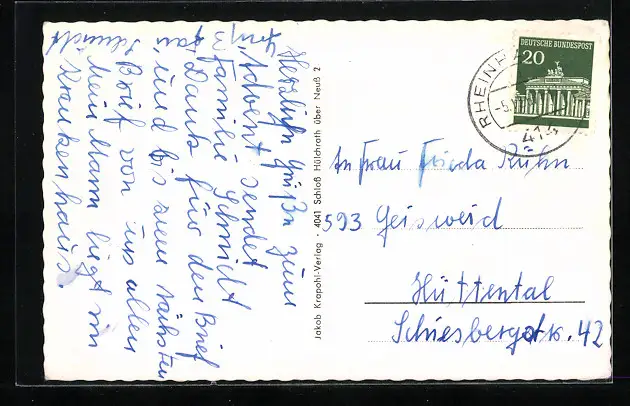 Herzliche Grüße zum
Advent sendet
Familie Schmidt
Dank für den Brief
und bis zum nächsten
Brief von uns allen
Mein Mann liegt im
Krankenhaus.
Jakob Krapohl-Verlag · 4041 Schloß Hülchrath über Neuß 2
DEUTSCHE BUNDESPOST
20
RHEINHA
414
An Frau Frieda Kühn
593 Geisweid
Hüttental
Schiesbergstr. 42